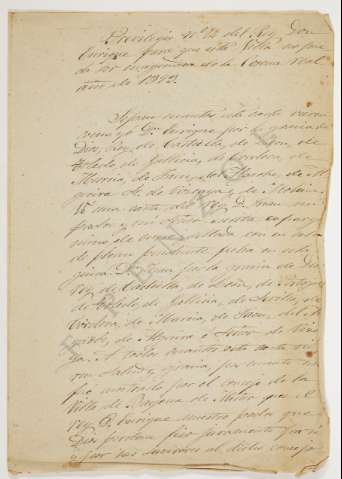 Privilegio nº 12 del Rey Don
Enrique para que esta Villa no pue
da ser enagenada de la Corona Real
año de 1392.
Sepan cuantos esta carta vieren
como yo Dn. Enrique por la gracia de
Dios, Rey de Castilla, de Leon, de
Toledo de Galicia, de Cordova, de
Murcia, de Jaen, del Algarbe, de Al
gecira de Vizcaya é de Molina
Vi una carta del Rey D. Juan mi
padre y mi Señor escrita en perga
mino de cuero y sellada con su sello
de plomo pendiente fecha en esta
guisa. D. Juan por la gracia de Dios
Rey de Castilla, de Leon, de Portugal
de Toledo, de Galicia, de Sevilla, de
Cordova, de Murcia, de Jaen, del
é Señor de
A todos cuantos esta carta
vieren salud y gracia
fué mostrado por el concejo de la
Villa de que el
rey D. Enrique nuestro padre que
Dios perdone
y por sus al dicho concejo